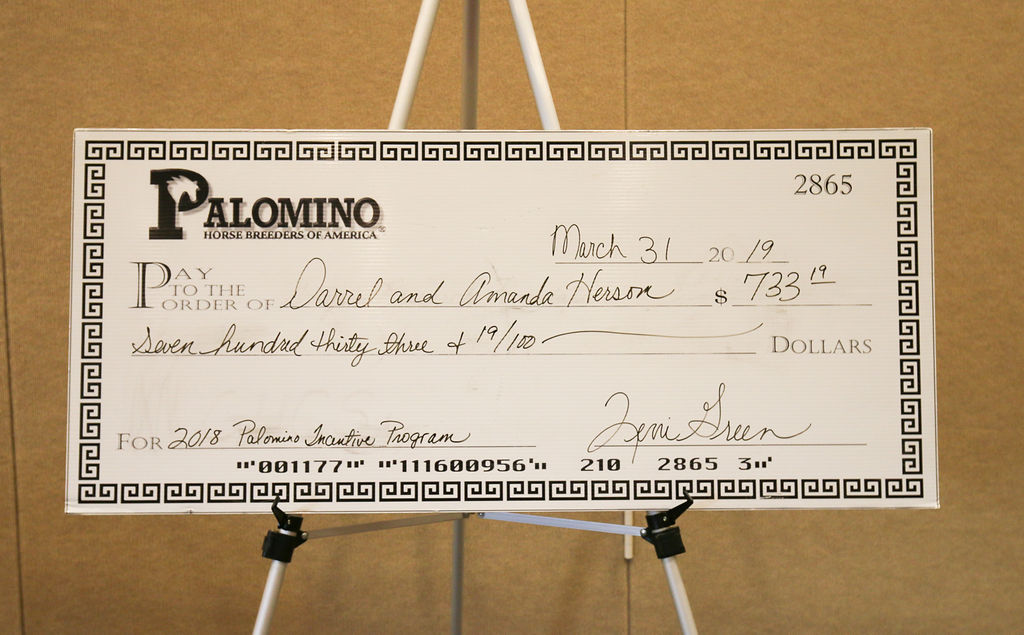 2865
PALOMINO
HORSE BREEDERS OF AMERICA®
March 31 20 19
PAY TO THE ORDER OF Darrel and Amanda Herson $ 733 19
Seven hundred thirty three & 19/100 DOLLARS
FOR 2018 Palomino Incentive Program Terri Green
⑈001177⑈ ⑈111600956⑈ 210 2865 3⑈